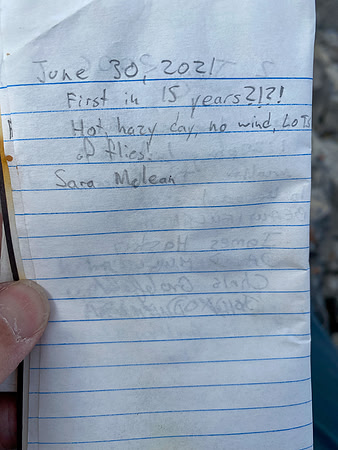 June 30, 2021
First in 15 years?!?!
Hot, hazy day, no wind, LOTS
of flies!
Sara McLean
James
Chris